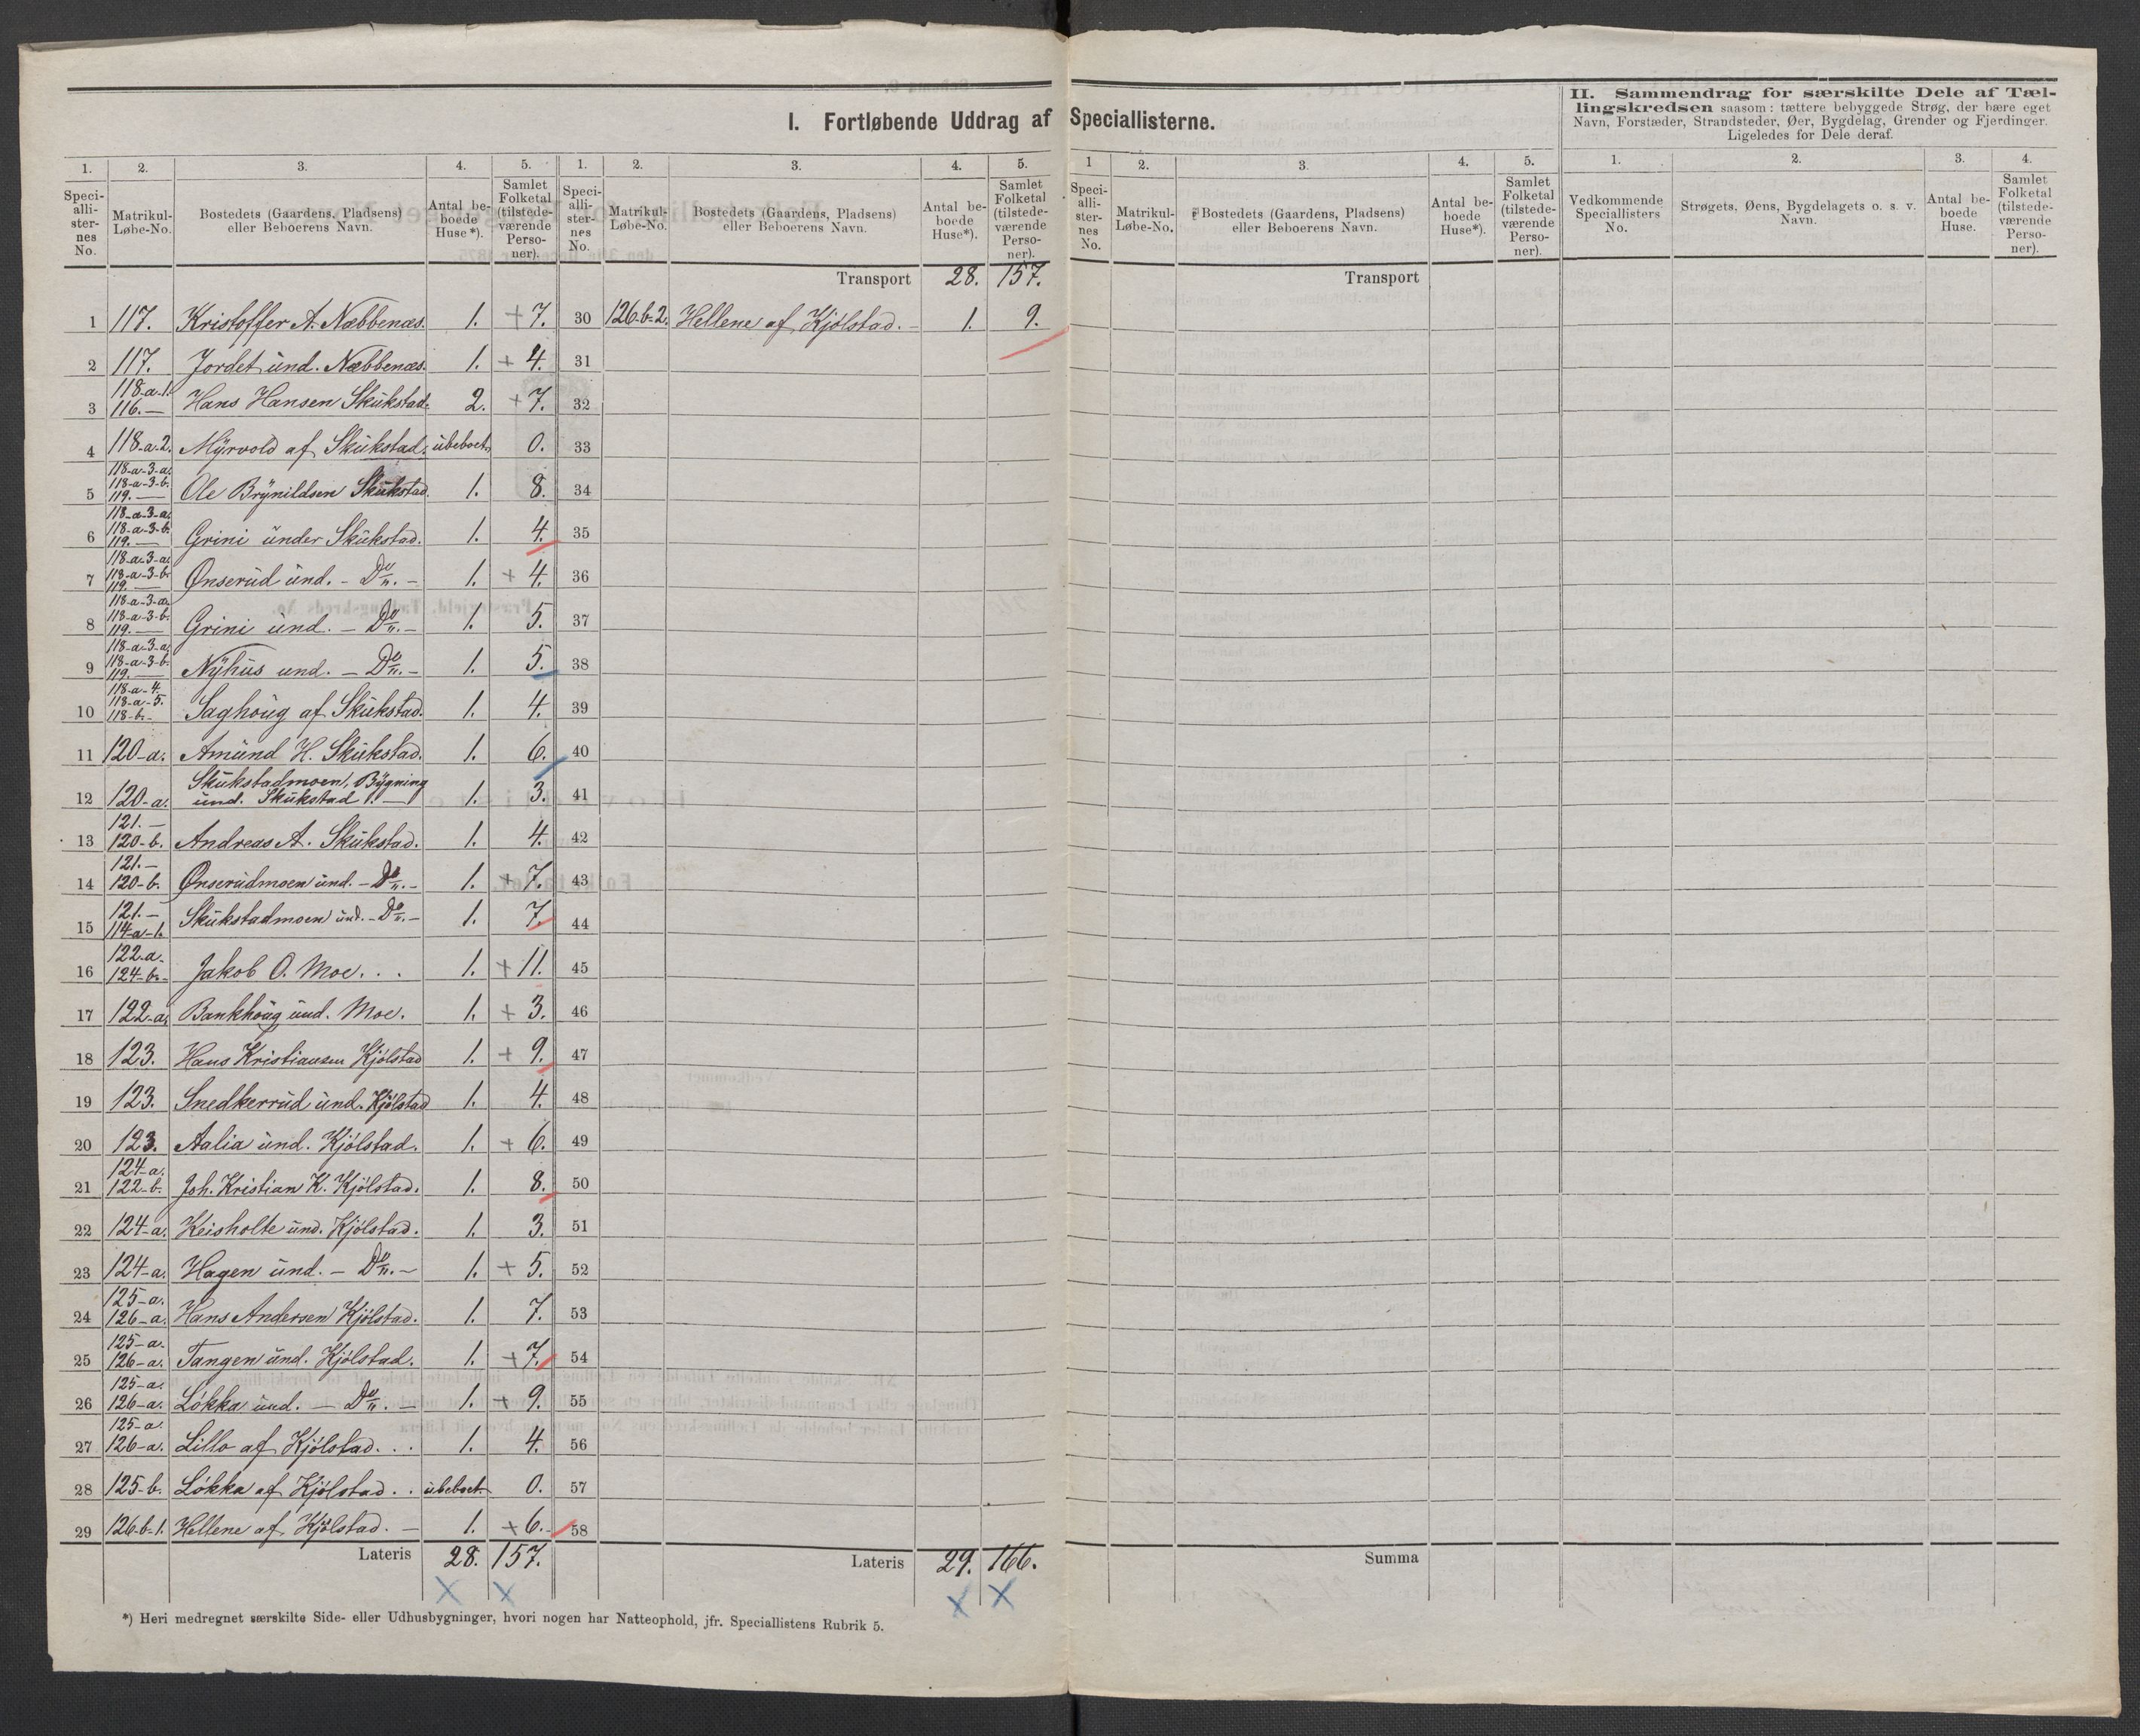 I. Fortløbende Uddrag af Speciallisterne.
II. Sammendrag for særskilte Dele af Tæl-
lingskredsen saasom: tættere bebyggede Strøg, der bære eget
Navn, Forstæder, Strandsteder, Øer, Bygdelag, Grender og Fjerdinger.
Ligeledes for Dele deraf.
1. 2. 3. 4. 5. 1. 2. 3. 4. 5. 1 2. 3. 4. 5. 1. 2. 3. 4.
Speci-
alli-
ster-
nes
No.
Matrikul-
Løbe-No.
Bostedets (Gaardens, Pladsens)
eller Beboerens Navn.
Antal be-
boede
Huse*).
Samlet
Folketal
(tilstede-
værende
Perso-
ner).
Speci-
alli-
ster-
nes
No.
Matrikul-
Løbe-No.
Bostedets (Gaardens, Pladsens)
eller Beboerens Navn.
Antal be-
boede
Huse*).
Samlet
Folketal
(tilstede-
værende
Perso-
ner).
Speci-
alli-
ster-
nes
No.
Matrikul-
Løbe-No.
Bostedets (Gaardens, Pladsens)
eller Beboerens Navn.
Antal be-
boede
Huse*).
Samlet
Folketal
(tilstede-
værende
Perso-
ner).
Vedkommende
Speciallisters
No.
Strøgets, Øens, Bygdelagets o. s. v.
Navn.
Antal be-
boede
Huse.
Samlet
Folketal
(tilstede-
værende
Perso-
ner).
Transport 28. 157. Transport
1 117. Kristoffer A. Næbbenæs. 1. + 7. 30 126-b-2. Hellene af Kjölstad. 1. 9.
2 117. Jordet und. Næbbenæs. 1. + 4. 31
118-a-1.
3 116. — Hans Hansen Skukstad. 2. + 7. 32
4 118-a-2. Myrvold af Skukstad. ubeboet. 0. 33
118-a-3-a.
118-a-3-b.
5 119. — Ole Brynildsen Skukstad. 1. 8. 34
118-a-3-a.
118-a-3-b.
6 119. — Grini under Skukstad. 1. 4. 35
118-a-3-a.
118-a-3-b.
7 119. — Onserud und. - Do. - 1. + 4. 36
118-a-3-a.
118-a-3-b.
8 119. — Grini und. - Do. - 1. 5. 37
118-a-3-a.
118-a-3-b.
9 119. — Nyhus und. - Do. - 1. 5. 38
118-a-4.
118-a-5.
10 118-b.- Saghoug af Skukstad. 1. 4. 39
11 120-a. Amund H. Skukstad. 1. 6. 40
Skukstadmoen, Bygning
12 120-a. und. Skukstad. — 1. 3. 41
121. —
13 120-b. Andreas A. Skukstad. 1. 4. 42
121. —
14 120-b. Onserudmoen und. - Do. - 1. + 7. 43
121. —
15 114-a-1. Skukstadmoen und. - Do. - 1. 7. 44
122-a.
16 124-b.- Jakob O. Moe. . . 1. + 11. 45
17 122-a. Bankhoug und. Moe. 1. + 3. 46
18 123. Hans Kristiansen Kjölstad 1. + 9. 47
19 123. Snedkerrud und. Kjölstad 1. 4. 48
20 123. Aalia und. Kjölstad. 1. + 6. 49
124-a.
21 122-b. Joh. Kristian K. Kjölstad. 1. 8. 50
22 124-a. Keisholte und. Kjölstad. 1. 3. 51
23 124-a. Hagen und. - Do. - 1. + 5. 52
125-a.
24 126-a. Hans Andersen Kjölstad. 1. 7. 53
125-a.
25 126-a. Tangen und. Kjölstad. 1. + 7. 54
125-a.
26 126-a. Lökka und. — Do. — 1. + 9. 55
125-a.
27 126-a. Lillo af Kjölstad. . . 1. 4. 56
28 125-b. Lökka af Kjölstad. . ubeboet. 0. 57
29 126-b-1. Hellene af Kjölstad. — 1. + 6. 58
Lateris 28. 157. Lateris 29. 166. Summa
*) Heri medregnet særskilte Side- eller Udhusbygninger, hvori nogen har Natteophold, jfr. Speciallistens Rubrik 5.